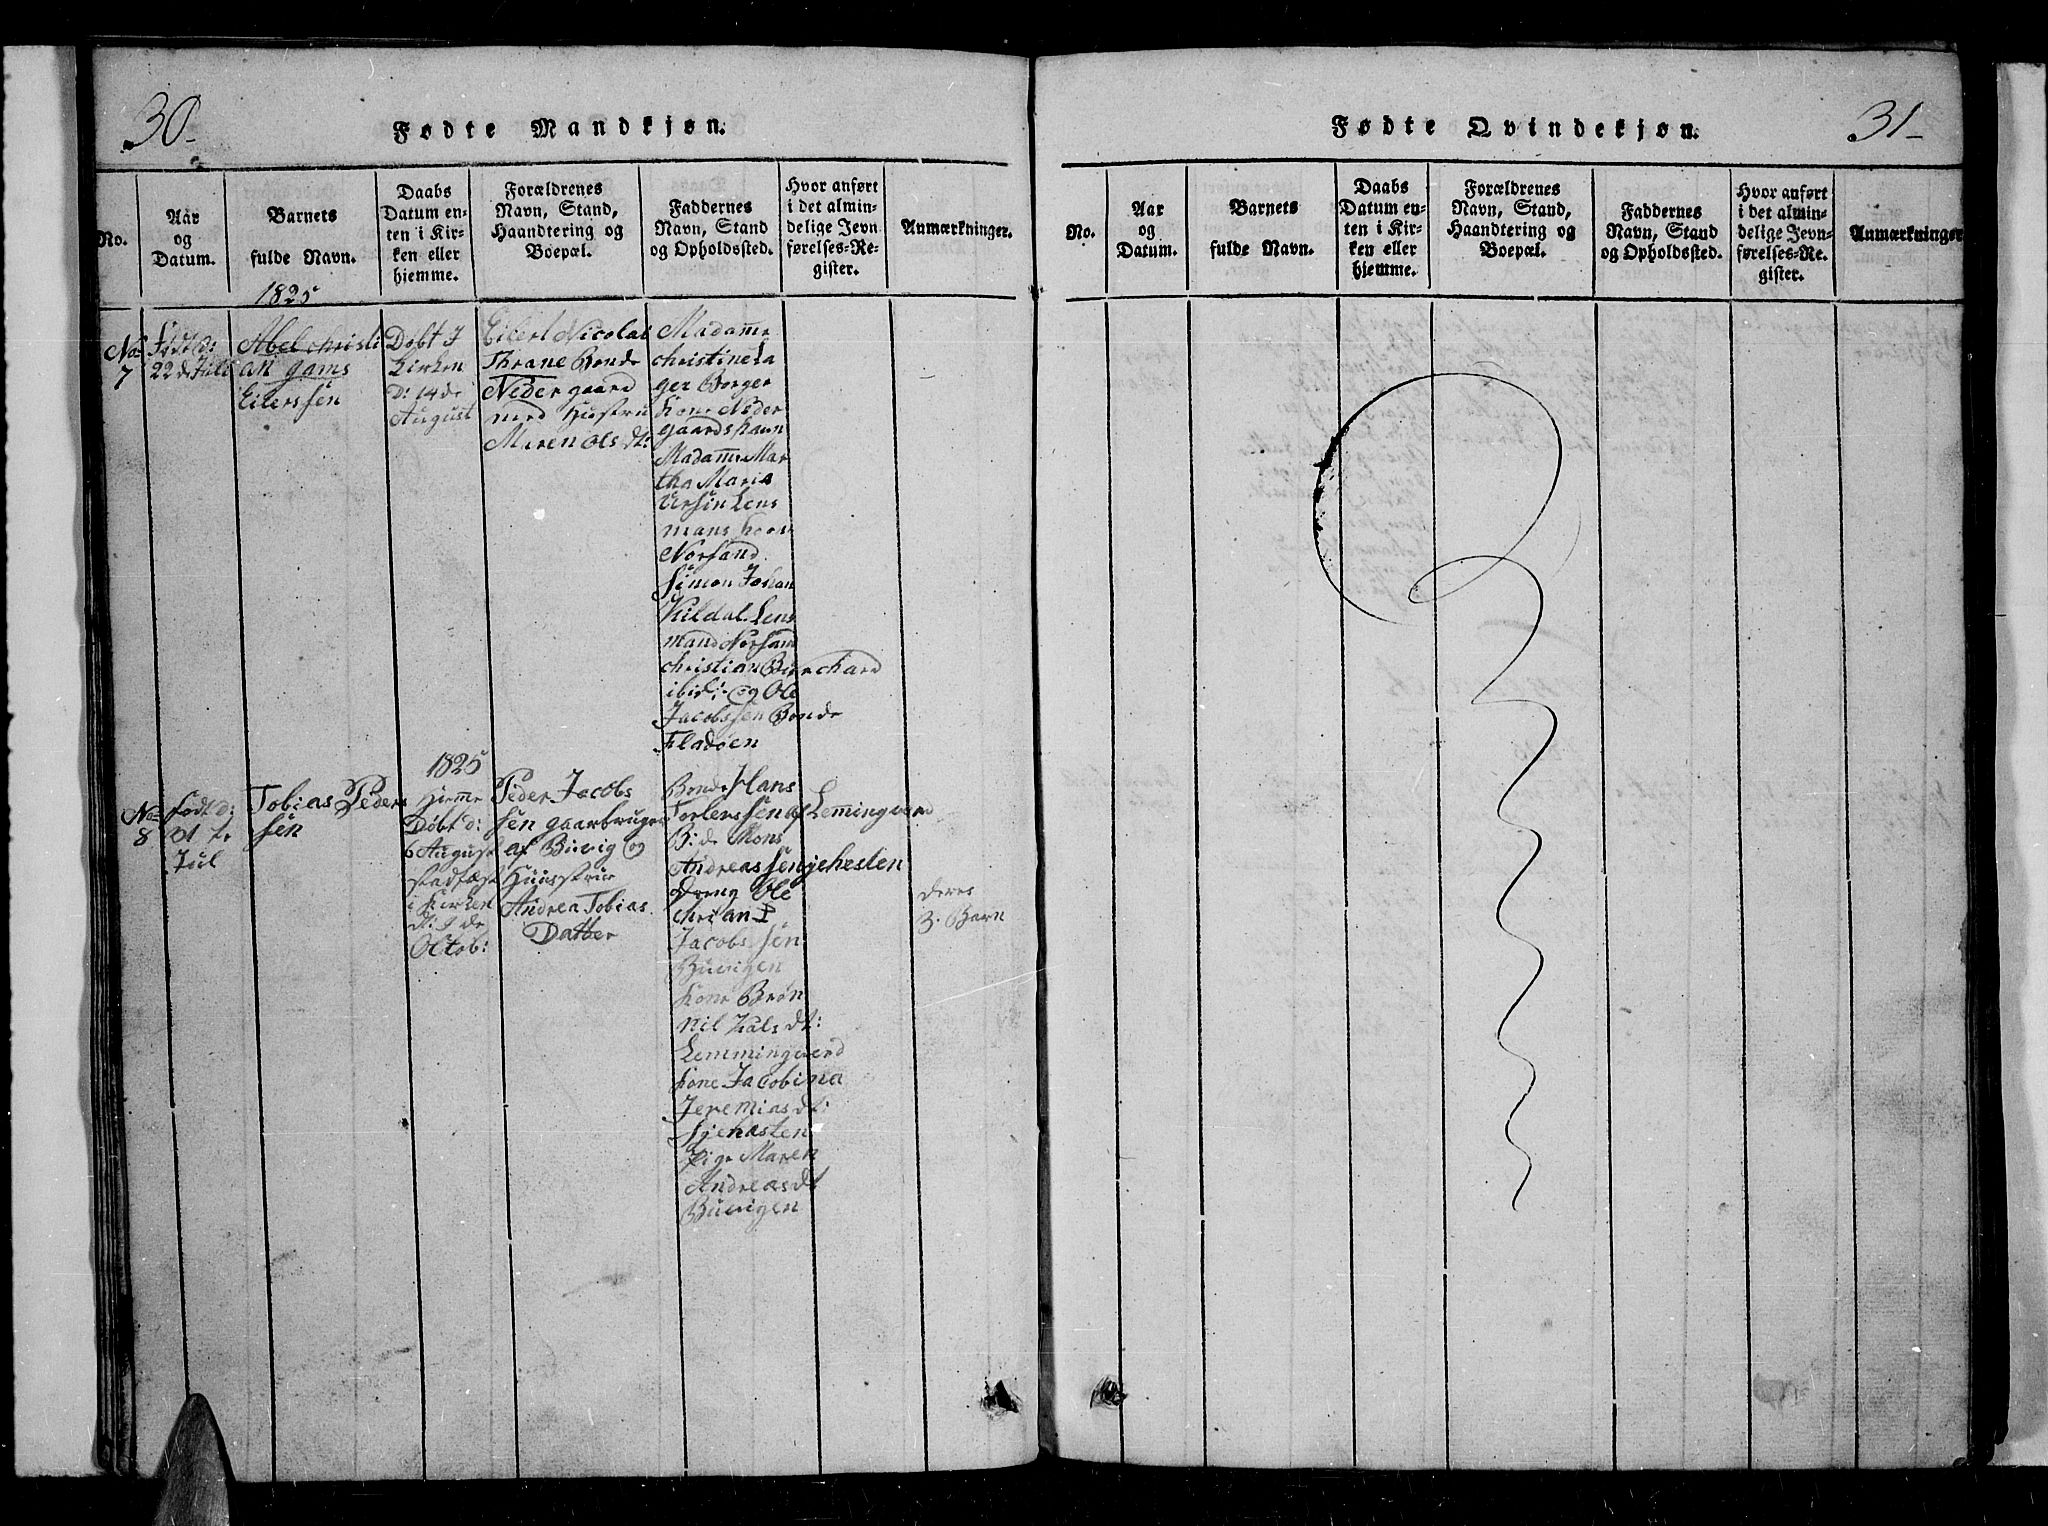 30-
Fødte Mandkjøn.
No.
Aar
og
Datum.
Barnets
fulde Navn.
Daabs
Datum en-
ten i Kir-
ken eller
hjemme.
Forældrenes
Navn, Stand,
Haandtering og
Boepæl.
Faddernes
Navn, Stand
og Opholdssted.
Hvor anført
i det almin-
delige Jevn-
førelses-Re-
gister.
Anmærkninger.
1825
No
7
Født d:
22de Juli
Abel Christi
an Jams
Eilerssen
Døbt I
Kirken
D: 14de
August
Eilert Nicolai
Thrane Bonde
Nedergaard
med Hustru
Maren Ols dt:
Madame
Christine La
ger Borger
Kone Neder
gaards havn
Madame Mar
tha Maria
Ursin Lens
mans kone
Norsand
Simon Johan
Kildal Lens
mand Norsand
Christian Burchard
ibid: og Ole
Jacobssen Bonde
Fladøen
1825
No
8
født d:
31 te
Jul
Tobias Peder
sen
Hiemme
Døbt d:
6 August
stadfæst
i Kirken
d: 9 de
Octob:
Peder Jacobs
sen gaarbruger
af Buvig og
Huustrue
Andrea Tobias
Datter
Bonde Hans
Torlerssen af Lemingværd
B:de Mons
Andreassen gjehesten
Dreng Ole
Chrian
Jacobssen
Buvigen
Kone Brøn
nil Hals dt:
Lemmingværd
Kone Jacobina
Jeremias dt:
Gjehæsten
Pige Maren
Andreas dt
Buvigen
deres
3. Barn
31-
Fødte Qvindekjøn.
No.
Aar
og
Datum.
Barnets
fulde Navn.
Daabs
Datum en-
ten i Kir-
ken eller
hjemme.
Forældrenes
Navn, Stand,
Haandtering og
Boepæl.
Faddernes
Navn, Stand
og Opholdssted.
Hvor anført
i det almin-
delige Jevn-
førelses-Re-
gister.
Anmærkninger